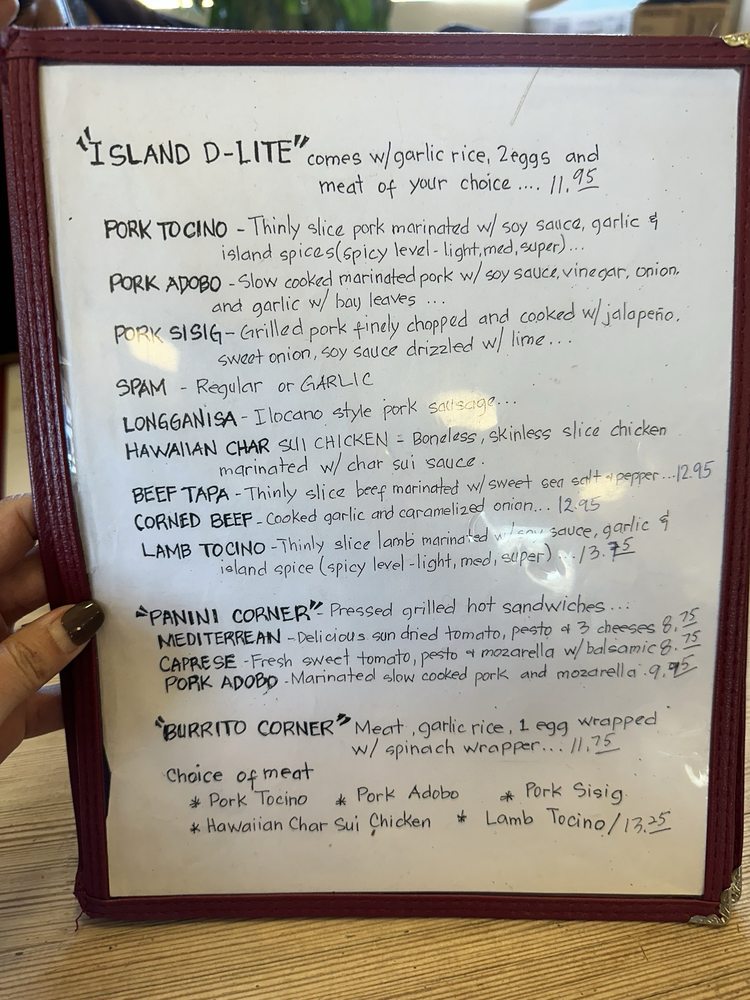 "ISLAND D-LITE" comes w/garlic rice, 2eggs and
meat of your choice .... 11.95
PORK TOCINO - Thinly slice pork marinated w/ soy sauce, garlic &
island spices(spicy level-light, med, super)...
PORK ADOBO - Slow cooked marinated pork w/ soy sauce, vinegar, onion,
and garlic w/ bay leaves ...
PORK SISIG - Grilled pork finely chopped and cooked w/ jalapeño,
sweet onion, soy sauce drizzled w/ lime...
SPAM - Regular or GARLIC
LONGGANISA - Ilocano style pork sausage...
HAWAIIAN CHAR SUI CHICKEN - Boneless, skinless slice chicken
marinated w/ char sui sauce.
BEEF TAPA - Thinly slice beef marinated w/ sweet sea salt & pepper...12.95
CORNED BEEF - Cooked garlic and caramelized onion... 12.95
LAMB TOCINO - Thinly slice lamb marinated w/ soy sauce, garlic &
island spice (spicy level-light, med, super) ... 13.75
"PANINI CORNER" - Pressed grilled hot sandwiches ...
MEDITERREAN - Delicious sun dried tomato, pesto & 3 cheeses 8.75
CAPRESE - Fresh sweet tomato, pesto & mozarella w/ balsamic 8.75
PORK ADOBO - Marinated slow cooked pork and mozarella . 9.95
"BURRITO CORNER" Meat, garlic rice, 1 egg wrapped
w/ spinach wrapper... 11.75
Choice of meat
* Pork Tocino * Pork Adobo * Pork Sisig
* Hawaiian Char Sui Chicken * Lamb Tocino / 13.25